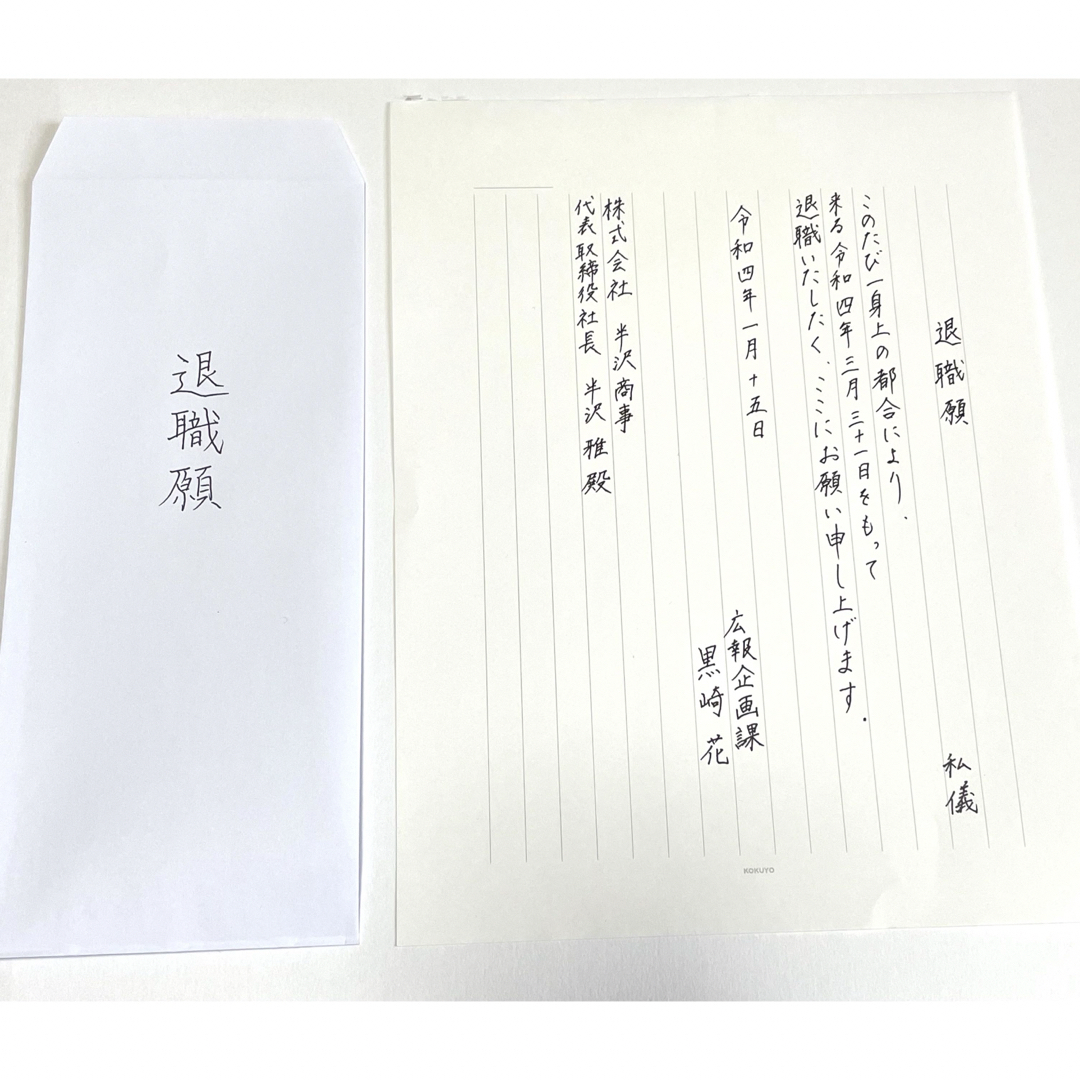 退職願
退職願
私儀
このたび一身上の都合により、
来る令和四年三月三十一日をもって
退職いたしたく、ここにお願い申し上げます。
令和四年一月十五日
広報企画課
黒崎 花
株式会社 半沢商事
代表取締役社長 半沢 雅殿
KOKUYO